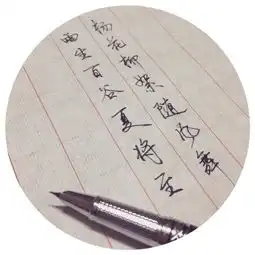 杨花柳絮随风舞
雨生百谷夏将至